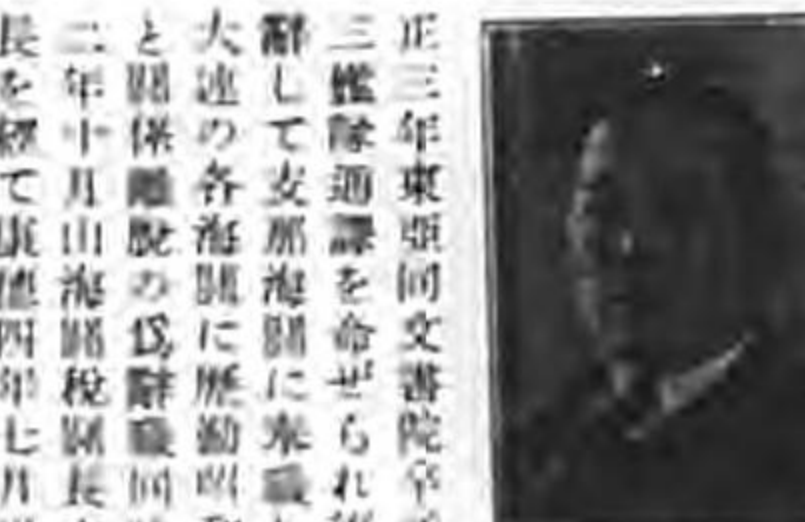 正三年東亜同文書院卒
三艦隊通譯を命ぜられ
辭して支那海關に奉職
大連の各海關に歴勤昭
と關係離脫の爲辭職同
二年十月山海關稅關長
長を經て康德四年七月